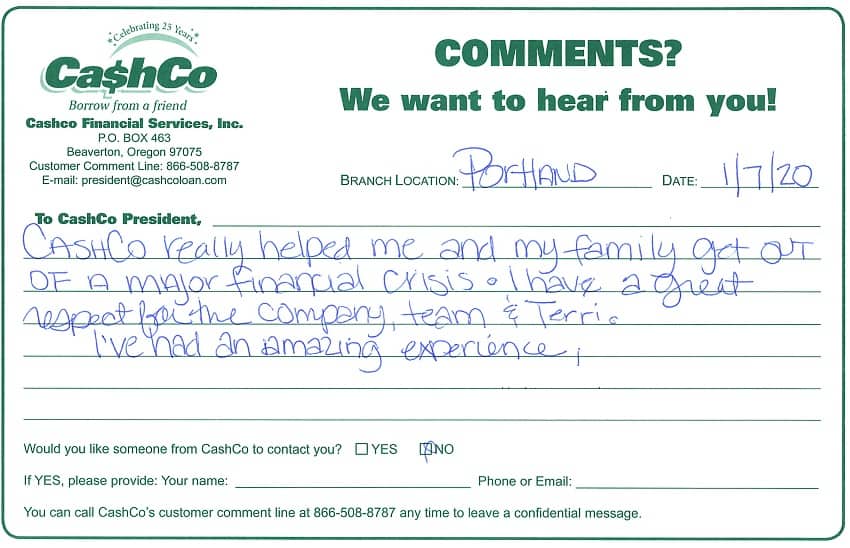 Celebrating 25 Years
Ca$hCo
Borrow from a friend
Cashco Financial Services, Inc.
P.O. BOX 463
Beaverton, Oregon 97075
Customer Comment Line: 866-508-8787
E-mail: president@cashcoloan.com
COMMENTS?
We want to hear from you!
BRANCH LOCATION: PORtlAND DATE: 1/7/20
To CashCo President,
CASHCo really helped me and my family get OUT
OF A MAJOR financial CRISIS. I have a great
respect for the company, team & Terri.
I've had an amazing experience,
Would you like someone from CashCo to contact you? ☐ YES ☒ NO
If YES, please provide: Your name: Phone or Email:
You can call CashCo's customer comment line at 866-508-8787 any time to leave a confidential message.